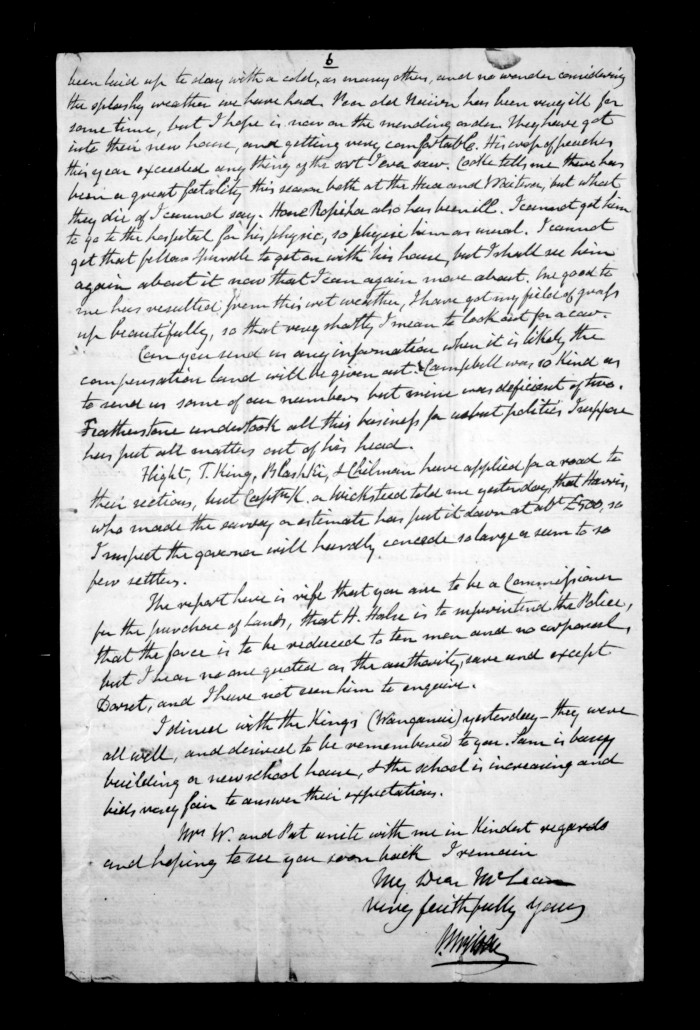 6
been laid up to day with a cold, as many others, and no wonder considering
the splashy weather we have had. Poor old Nairn has been very ill for
some time, but I hope is now on the mending order. They have got
into their new house, and getting very comfortable. His crop of peaches
this year exceeded any thing of the sort I ever saw. Cooke tells me there has
been a great fatality this season both at the Hua and Waitara, but what
they die of I cannot say. Hone Ropiha also has been ill. I cannot get him
to go to the hospital for his physic, so physic him as usual. I cannot
get that fellow Spurdle to get on with his house, but I shall see him
again about it now that I can again move about. One good to
me has resulted from this wet weather, I have got my field of grass
up beautifully, so that very shortly I mean to look out for a cow.
Can you send us any information when it is likely the
compensation land will be given out. Campbell was so kind as
to send us some of our numbers but mine was deficient of two.
Featherstone undertook all this business for us but politics I suppose
has put all matters out of his head.
Flight, T. King, Blaschke, & Chilman have applied for a road to
their sections, but Capt. K. or Wicksteed told me yesterday, that Harris,
who made the survey or estimate has put it down at abt. £500, so
I suspect the governor will hardly concede so large a sum to so
few settlers.
The report here is rife that you are to be a Commissioner
for the purchase of Lands, that H. Halse is to superintend the Police,
that the force is to be reduced to ten men and no corporal,
but I hear no one quoted as the authority, save and except
Dorset, and I have not seen him to enquire.
I dined with the Kings (Wanganui) yesterday - they were
all well, and desired to be remembered to you. Sam is busy
building a new school house, & the school is increasing and
bids very fair to answer their expectations.
Mrs W. and Pat unite with me in Kindest regards
and hoping to see you soon back I remain
My Dear McLean
very faithfully Yours
P. Wilson